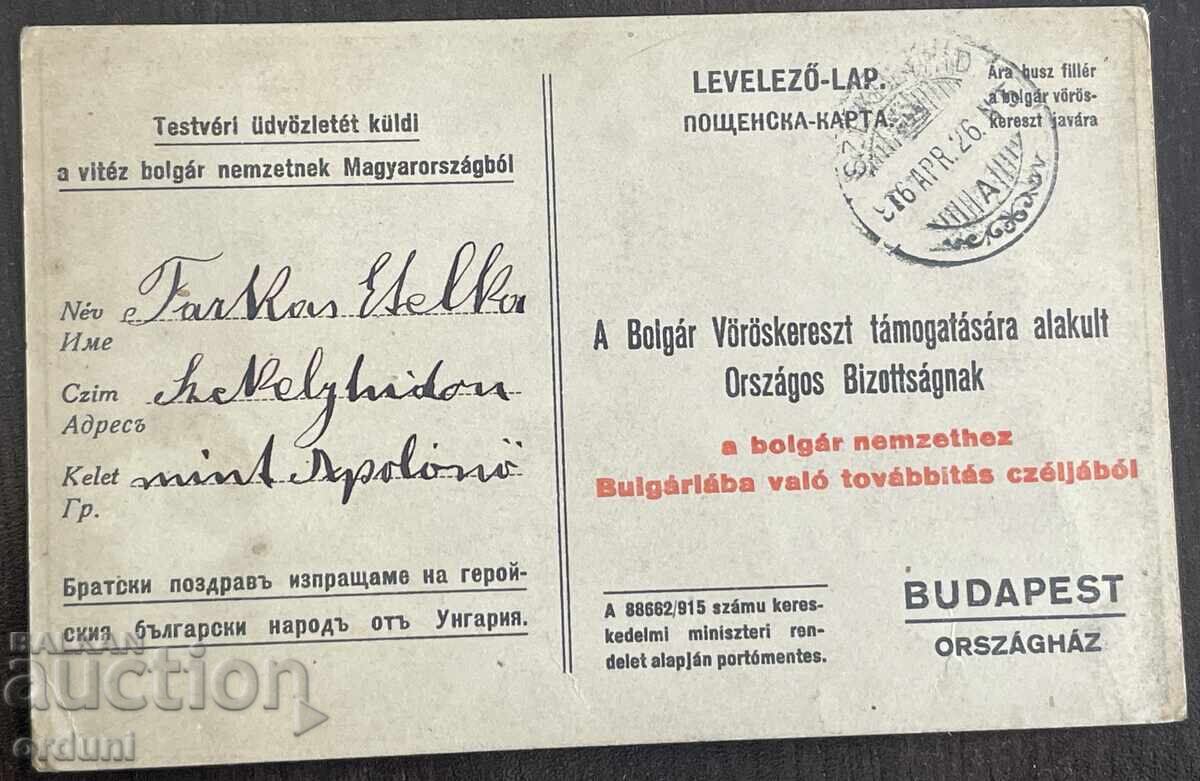 Testvéri üdvözletét küldi
a vitéz bolgár nemzetnek Magyarországból
Név Farkas Etelka
Име
Czim Székelyhidon
Адресъ
Kelet mint Apolónő
Гр.
Братски поздравъ изпращаме на герой-
ския български народъ отъ Унгария.
LEVELEZŐ-LAP.
ПОЩЕНСКА-КАРТА.
Ára husz fillér
a bolgár vörös-
kereszt javára
916 APR. 26.
A
A Bolgár Vöröskereszt támogatására alakult
Országos Bizottságnak
a bolgár nemzethez
Bulgáriába való továbbitás czéljából
A 88662/915 számu keres-
kedelmi miniszteri ren-
delet alapján portómentes.
BUDAPEST
ORSZÁGHÁZ
BALKAN
auction
orduni